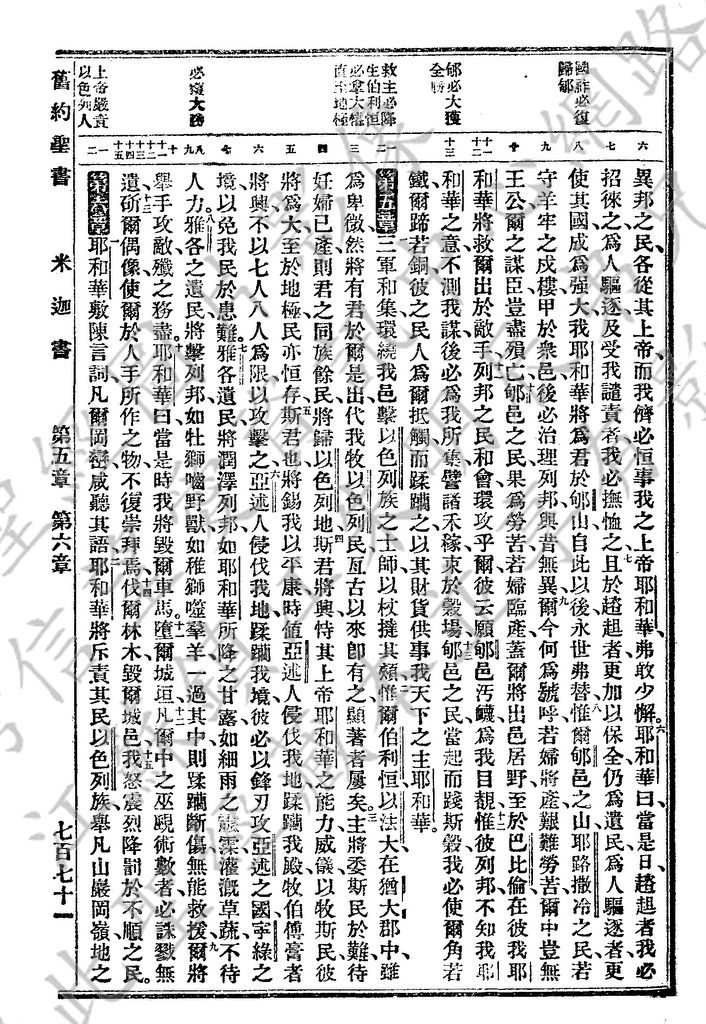 國祚必復
歸郇
郇必大獲
全勝
救主必降
生伯利恒
必拿大權
直至地極
必獲大勝
上帝嚴責
以色列人
六
七
八
九
十
十一
十二
十三
一二
三
四
五
六
七
八
九
十
十一
十二
十三
十四
十五
一
二
異邦之民各從其上帝而我儕必恒事我之上帝耶和華弗敢少懈。六耶和華曰當是日趦趄者我必
招徠之為人驅逐及受我譴責者我必撫恤之七且於趦趄者更加以保全仍為遺民為人驅逐者更
使其國成為強大我耶和華將為君於郇山自此以後永世弗替八惟爾郇邑之山耶路撒冷之民若
守羊牢之戍樓甲於衆邑後必治理列邦與昔無異九爾今何為號呼若婦將產艱難勞苦爾中豈無
王公爾之謀臣豈盡殞亡十郇邑之民果為勞苦若婦臨產蓋爾將出邑居野至於巴比倫在彼我耶
和華將救爾出於敵手十一列邦之民和會環攻乎爾彼云願郇邑汚衊為我目覩十二惟彼列邦不知我耶
和華之意不測我謀後必為我所集譬諸禾稼束於穀場十三郇邑之民當起而踐斯穀我必使爾角若
鐵爾蹄若銅彼之民人為爾抵觸而蹂躪之以其財貨供事我天下之主耶和華。
第五章一三軍和集環繞我邑擊以色列族之士師以杖撻其頰二惟爾伯利恒以法大在猶大郡中雖
為卑微然將有君於爾是出代我牧以色列民亙古以來卽有之顯著者屢矣三主將委斯民於難待
妊婦已產則君之同族餘民將歸以色列地四斯君將興恃其上帝耶和華之能力威儀以牧斯民彼
將為大至於地極民亦恒存五斯君也將錫我以平康時値亞述人侵伐我地蹂躪我殿牧伯傅膏者
將興不以七人八人為限以攻擊之六亞述人侵伐我地蹂躪我境彼必以鋒刃攻亞述之國寧綠之
境以免我民於患難七雅各遺民將潤澤列邦如耶和華所降之甘露如細雨之霢霂灌漑草蔬不待
人力八雅各之遺民將擊列邦如牡獅噬野獸如稚獅噬羣羊一過其中則蹂躪斷傷無能救援九爾將
舉手攻敵殲之務盡十耶和華曰當是時我將毀爾車馬十一墮爾城垣十二凡爾中之巫覡術數者必誅戮無
遺十三斫爾偶像使爾於人手所作之物不復崇拜十四焉伐爾林木毀爾城邑十五我怒震烈降罰於不順之民。
第六章一耶和華敷陳言詞凡爾岡巒咸聽其語二耶和華將斥責其民以色列族舉凡山巖岡嶺地之
舊約聖書　米迦書　第五章　第六章　七百七十一